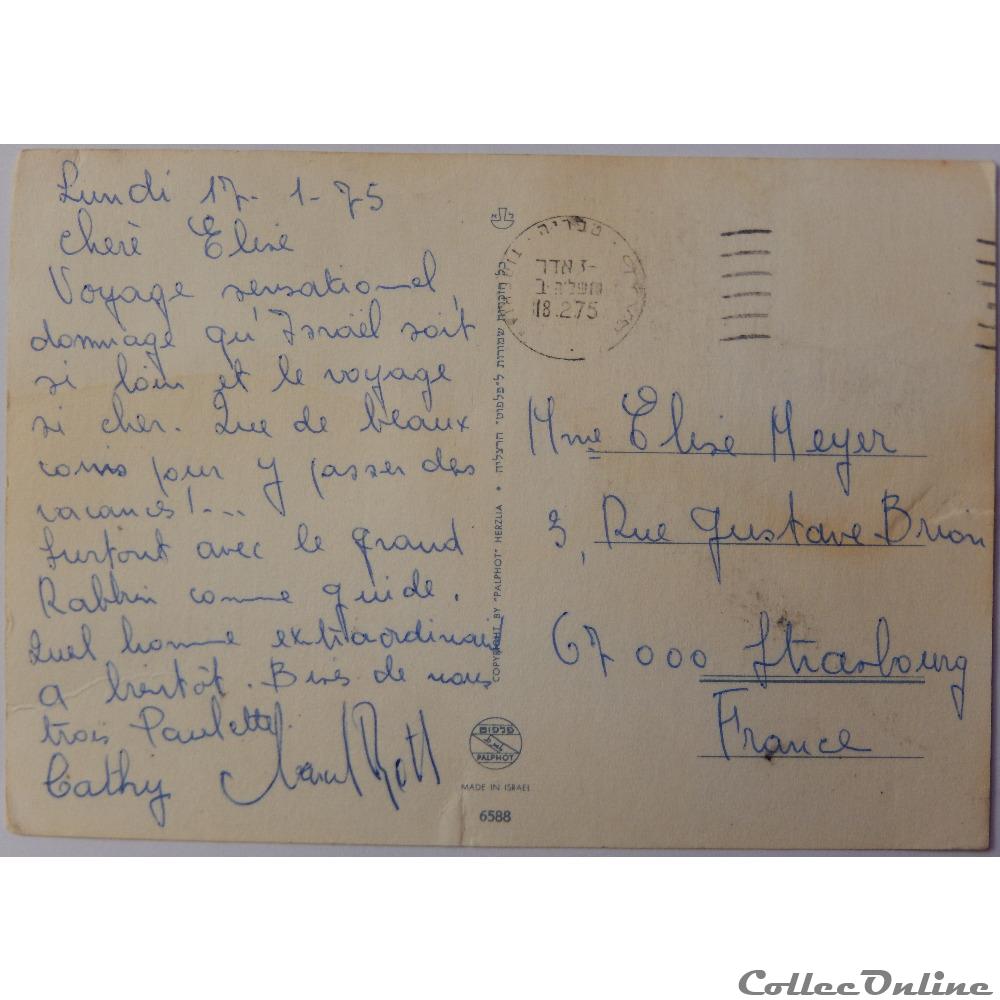 Lundi 17-1-75
Chère Elise
Voyage sensationel,
dommage qu'Israël soit
si loin et le voyage
si cher. Que de beaux
coins pour y passer des
vacances!...
Surtout avec le grand
Rabbin comme guide.
Quel homme extraordinaire
A bientôt. Bises de nous
trois Paulette.
Cathy
טבריה
-7 אדר
תשל"ה
18.2.75
כל הזכויות שמורות ל"פלפוט" הרצליה • COPYRIGHT BY "PALPHOT" HERZLIA
פלפוט
PALPHOT
MADE IN ISRAEL
6588
Mme Elise Meyer
3, Rue Gustave Brion
67000 Strasbourg
France
CollecOnline